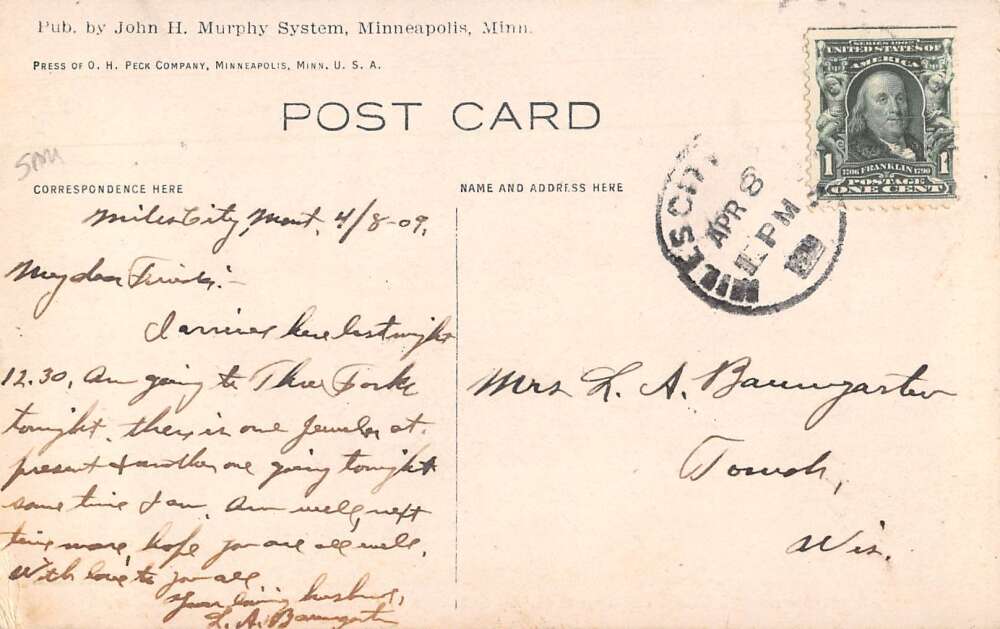 Pub. by John H. Murphy System, Minneapolis, Minn.
PRESS OF O. H. PECK COMPANY, MINNEAPOLIS, MINN. U. S. A.
POST CARD
SERIES 1902
UNITED STATES OF
AMERICA
1 1
1706 FRANKLIN 1790
POSTAGE
ONE CENT
MILES CITY
APR 8
PM
CORRESPONDENCE HERE
NAME AND ADDRESS HERE
Miles City, Mont. 4/8-09.
My dear
I arrived here last night
12.30, Am going to Three Forks
tonight. there is one Jeweler at
present & another one going tonight
same time I am. Am well, next
time more, hope you are all well.
With love to you all
Your loving husband,
L. A. Baumgarten
Mrs L. A. Baumgarten
Tomah,
Wis.